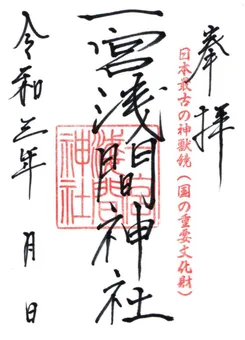 奉拝
日本最古の神獣鏡(国の重要文化財)
一宮浅間神社
一宮浅間神社
令和三年 月 日